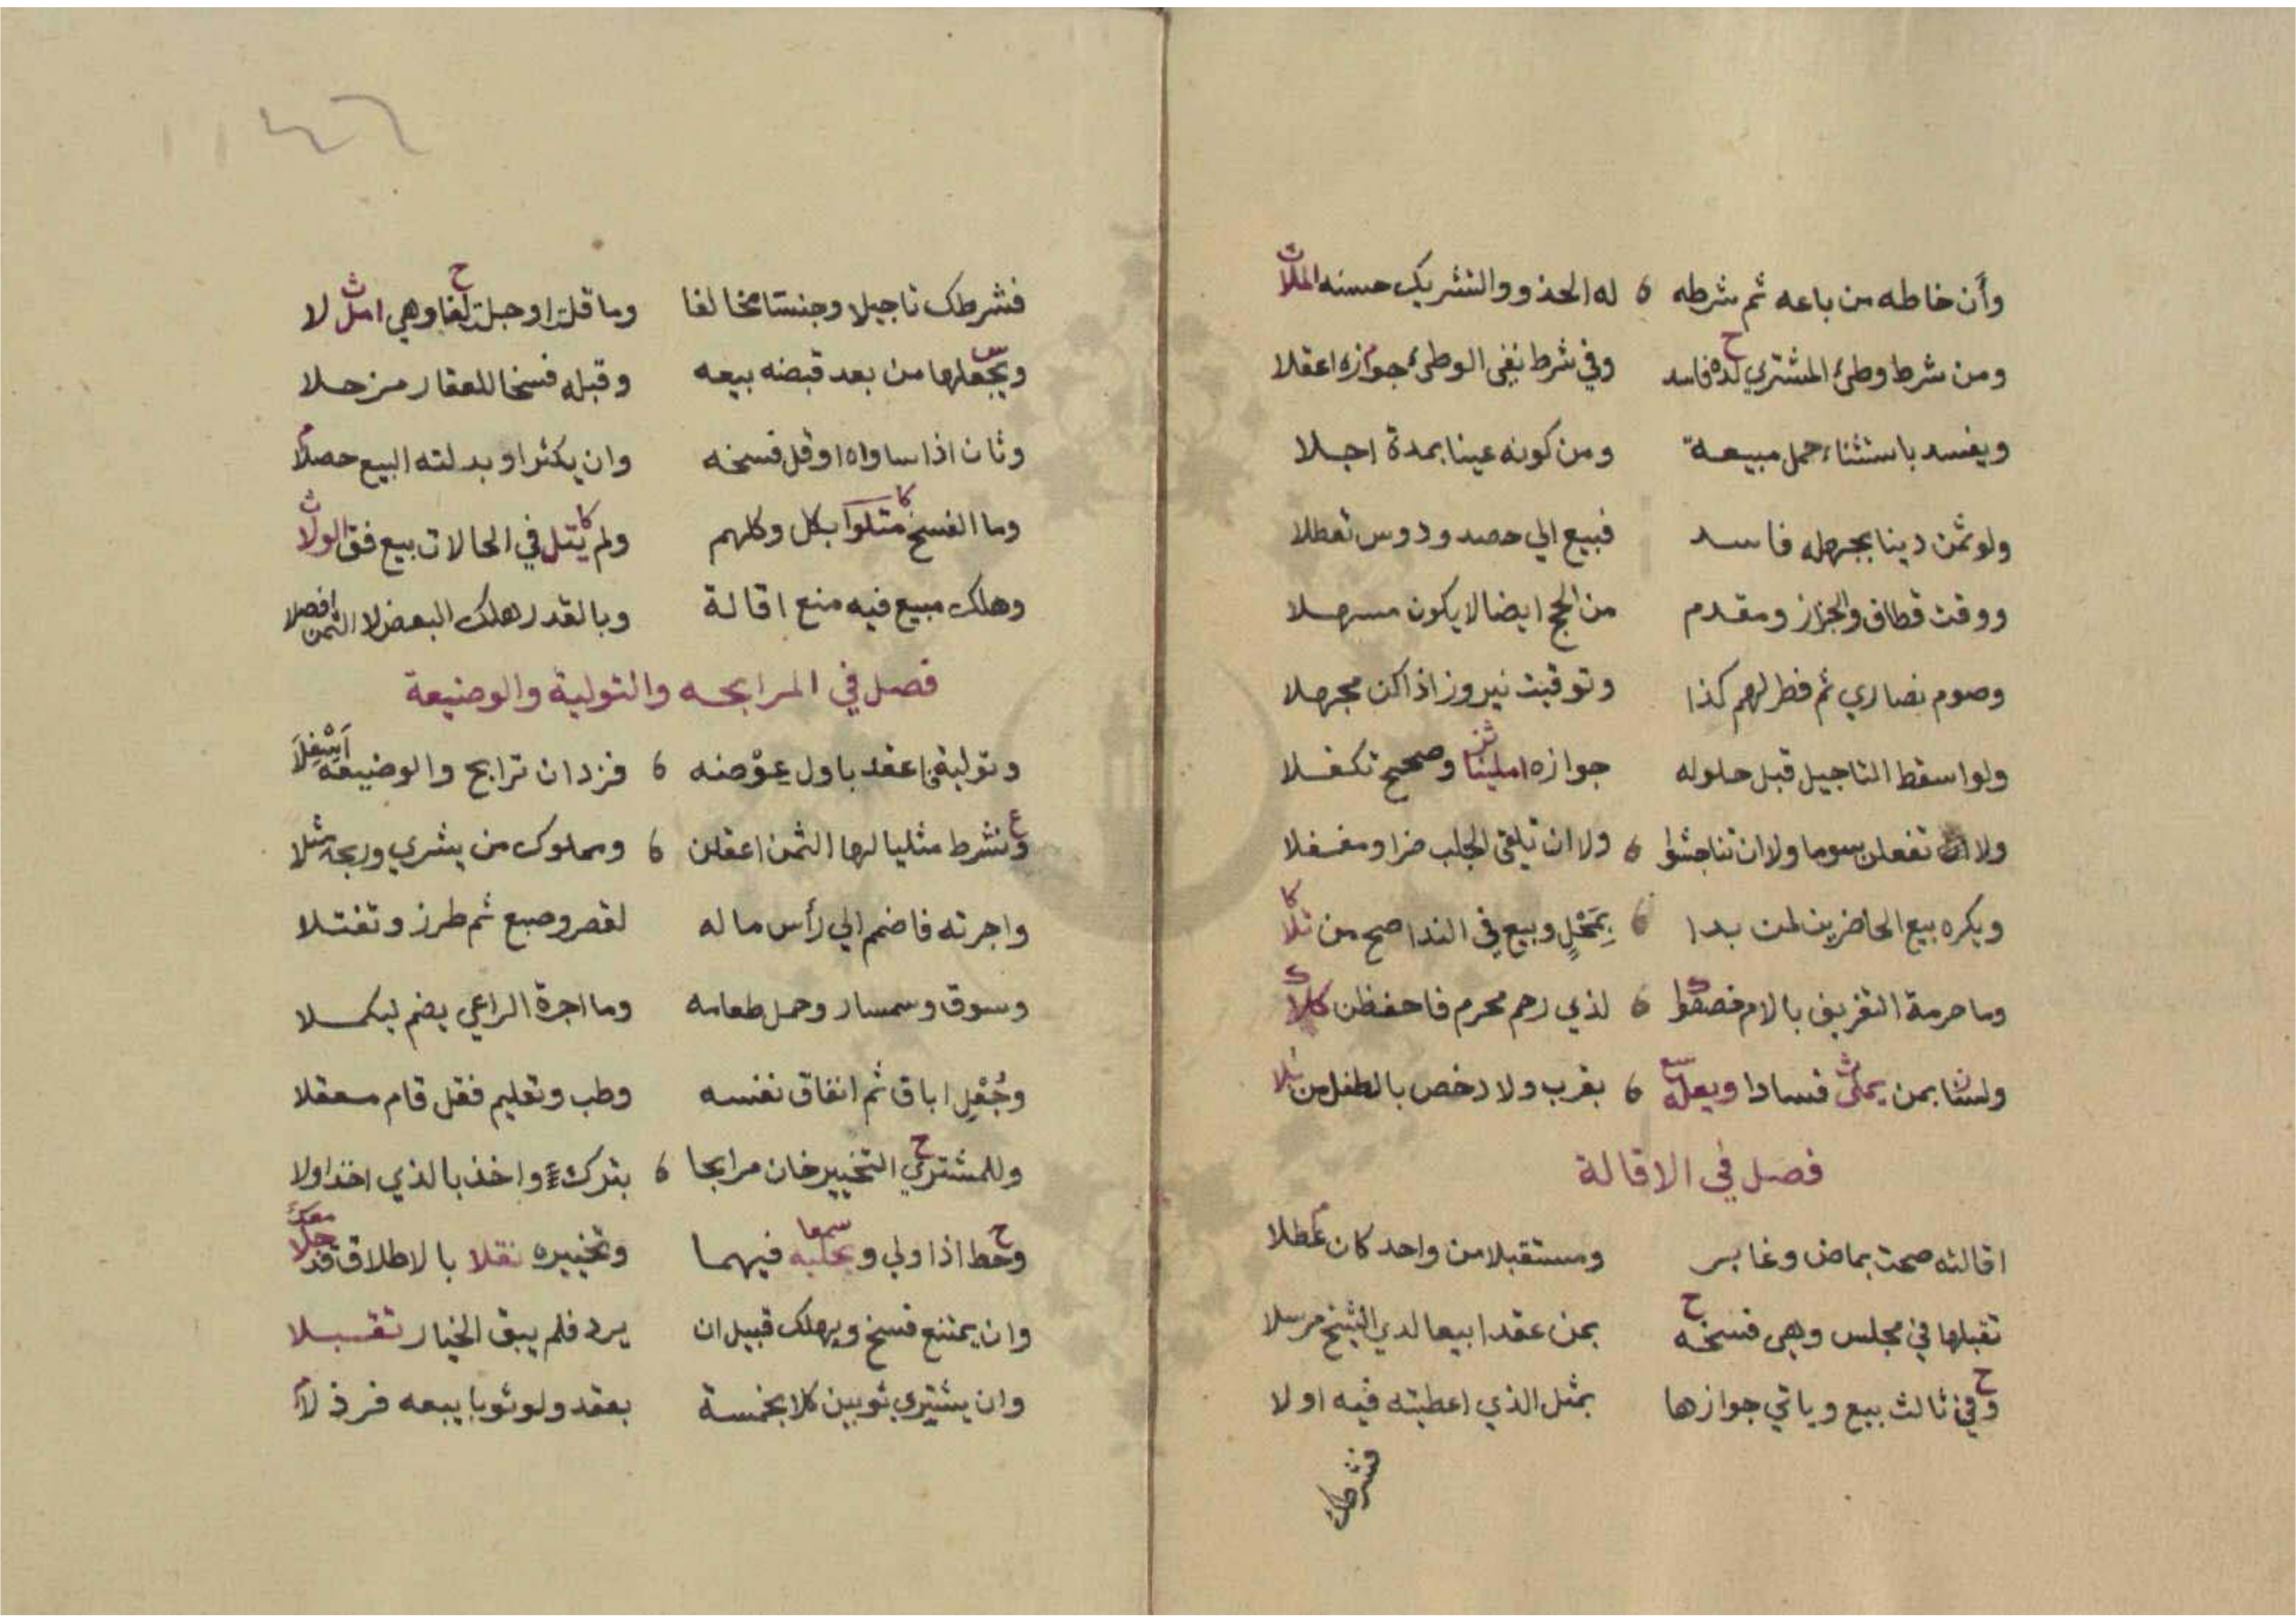 وأن خاطه من باعه ثم شرطه ٥ له الحذو والتشريك حسنه الملا
ومن شرط وطئ المشتري لده فاسد وفي شرط نفي الوطئ جوازه اعقلا
ويفسد باستثناء حمل مبيعة ومن كونه عينا بمدة اجلا
ولو ثمن دينا بجهله فاسد فبيع الي حصد ودوس تعطلا
ووقت قطاف والجزاز ومقدم من الحج ايضا لا يكون مسهلا
وصوم نصاري ثم فطر لهم كذا وتوقيت نيروز اذا كن مجهلا
ولو اسقط التاجيل قبل حلوله جوازه املينا وصحيح تكفلا
ولا تفعلن سوما ولا ان تناجشوا ٥ ولا ان تلقي الجلب ضرا ومغفلا
ويكره بيع الحاضرين لمن بدا ٥ بِمَحْلٍ وبيع في الندا صح من تلا
وما حرمة التفريق بالام خصصوا ٥ لذي رحم محرم فاحفظن كلا
ولسنا بمن يملي فسادا ويعله ٥ بقرب ولا رخص بالطفل من تلا
فصل في الاقالة
اقالته صحت بماض وغابر ومستقبلا من واحد كان عطلا
تقبلها في مجلس وهي فسخه بمن عقدا بيعا لدي الشيخ مرسلا
وفي ثالث بيع وياتي جوازها بمثل الذي اعطيته فيه اولا
فشرطك
فشرطك تاجيلا وجنسا مخالفا وما قلت او جلت لغا وهي امل لا
ويجعلها من بعد قبضه بيعه وقبله فسخا للعقار مزحلا
وثان اذا ساواه او قل فسخه وان يكثر او بدلته البيع حصلا
وما الفسخ متلوا بكل وكلهم ولم يتل في الحالات بيع فق الولا
وهلك مبيع فيه منع اقالة وبالقدر هلك البعض لا الثمن افصلا
فصل في المرابحه والتولية والوضيعة
وتولية اعقد باول عوضه ٥ فزد ان ترابح والوضيعة اَسْفِلَا
وشرط مثليا لها الثمن اعقلن ٥ ومملوك من يشري وربحه مثلا
واجرته فاضم الي رأس ماله لقصر وصبع ثم طرز وتفتلا
وسوق وسمسار وحمل طعامه وما اجرة الراعي يضم ليكملا
وجُعْلِ اباق ثم انفاق نفسه وطب وتعليم فقل قام معقلا
وللمشتري التخيير خان مرابحا ٥ بترك واخذ بالذي اخذ اولا
وحط اذا ولي فيهما وتخييره نقلا بالاطلاق قد جلا
وان يمتنع فسخ ويهلك قبيل ان يرد فلم يبق الخيار تقبلا
وان يشتري ثوبين كلا بخمسة بعقد ولو ثوبا يبعه فرذلا